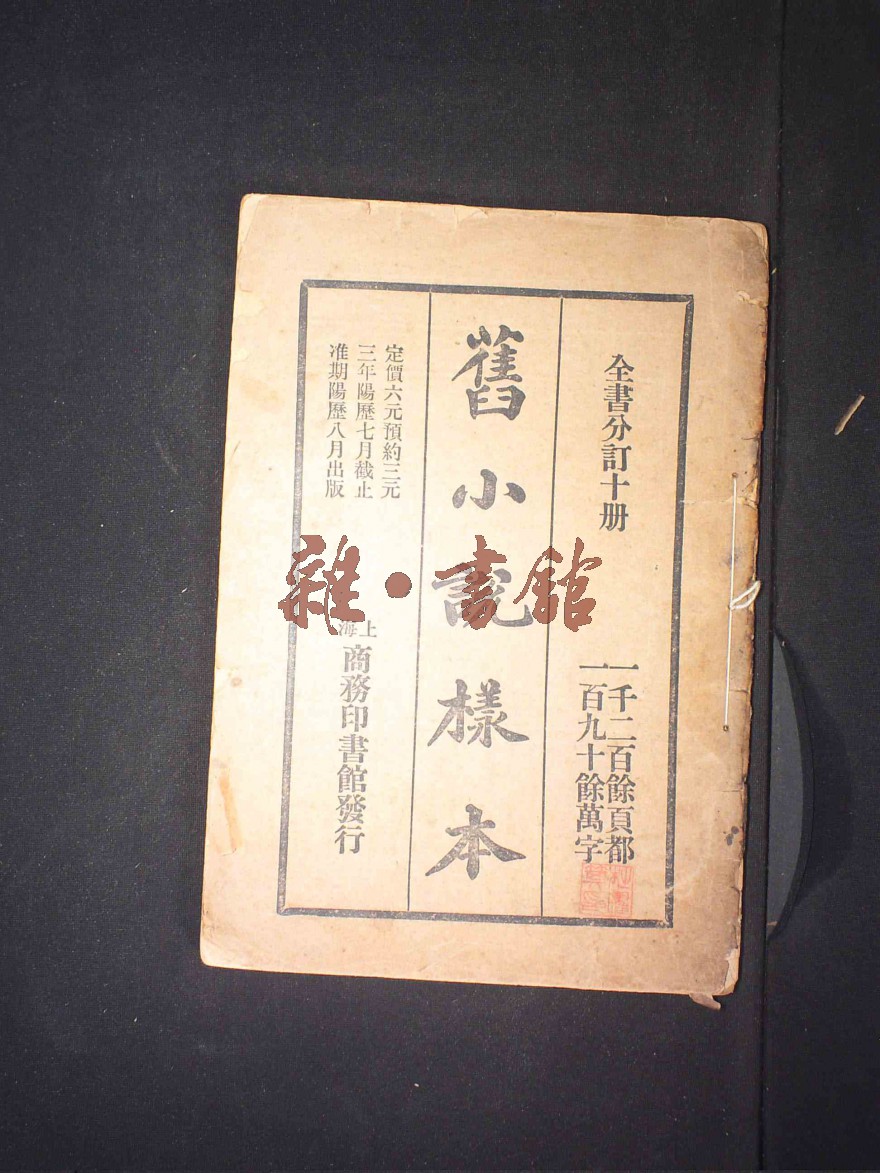 全書分訂十册
一千二百餘頁都
一百九十餘萬字
舊小說樣本
定價六元預約三元
三年陽歷七月截止
准期陽歷八月出版
上海
商務印書館發行
雜·書館